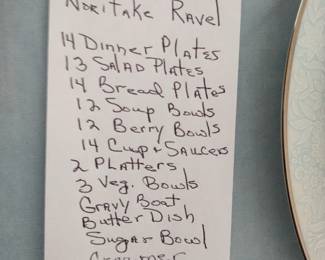 Noritake Ravel
14 Dinner Plates
13 Salad Plates
14 Bread Plates
12 Soup Bowls
12 Berry Bowls
14 Cup + Saucers
2 Platters
3 Veg. Bowls
Gravy Boat
Butter Dish
Sugar Bowl
Creamer